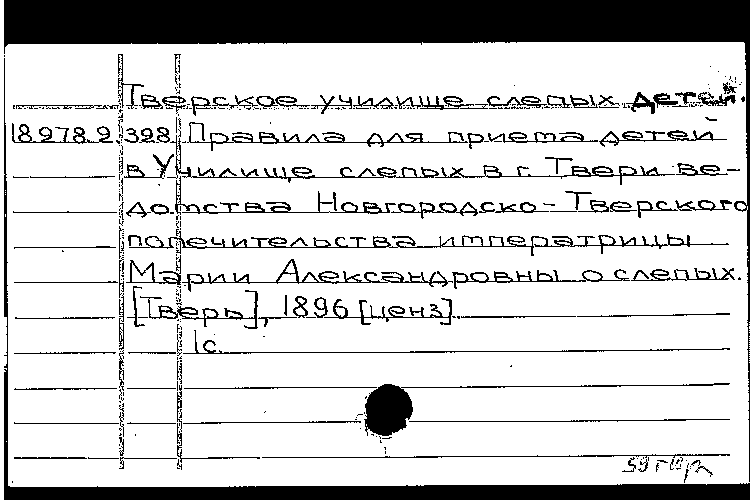 Тверское училище слепых детей.
18.278.2.398 Правила для приема детей
в Училище слепых в г. Твери ве-
домства Новгородско-Тверского
попечительства императрицы
Марии Александровны о слепых.
[Тверь], 1896 [ценз].
1с.